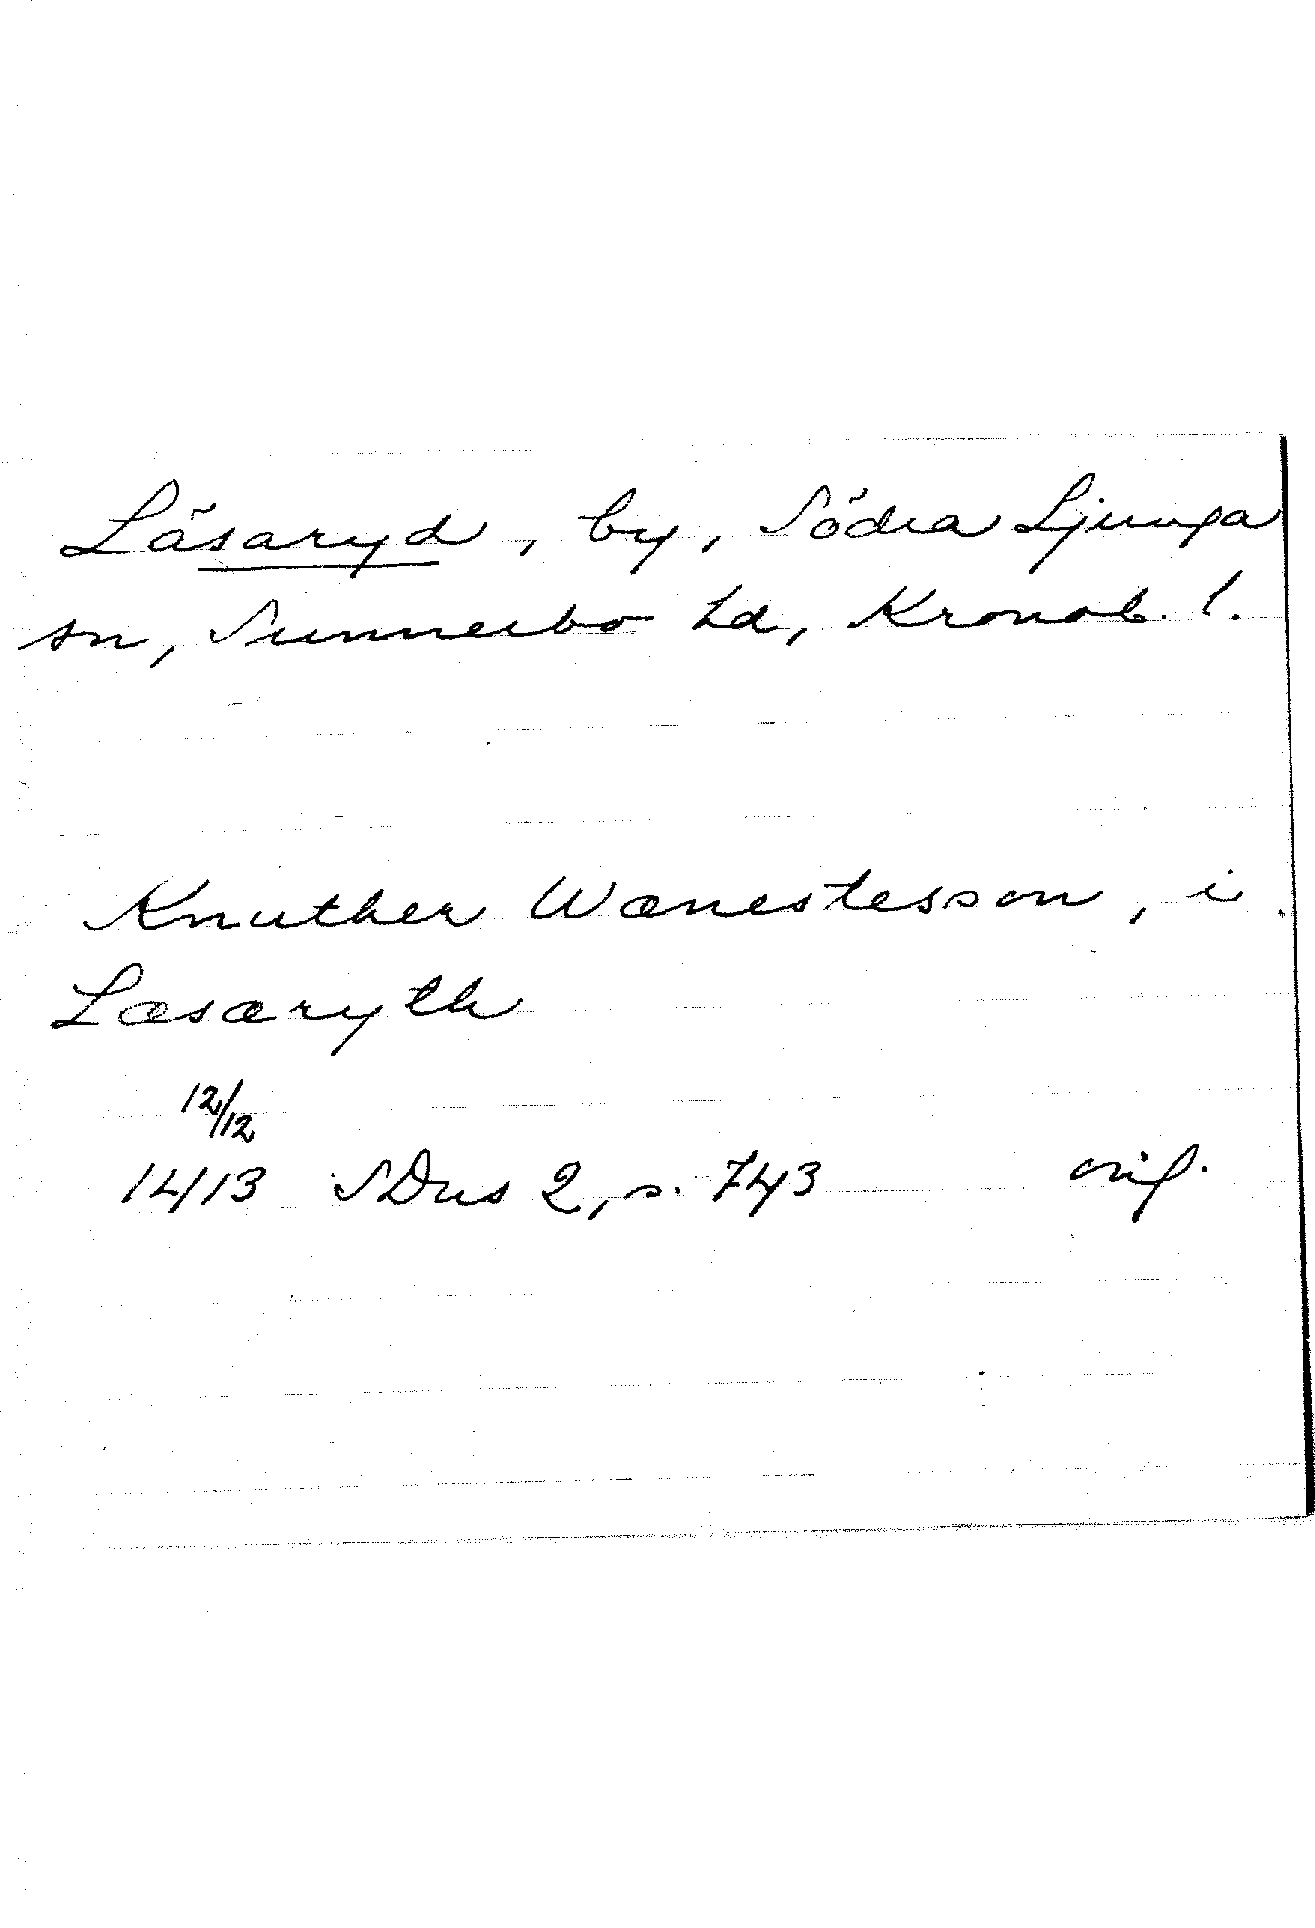 Läsaryd, by, Södra Ljunga
sn, Sunnerbo hd, Kronob. l.
Knuther Wænestesson, i
Læsæryth
12/12
1413 SDns 2, s. 743 orig.